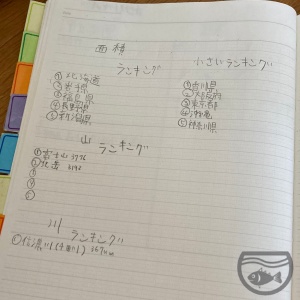 面積
ランキング
①北海道
②岩手県
③福島県
④長野県
⑤新潟県
小さいランキング
①香川県
②大阪府
③東京都
④沖縄
⑤神奈川県
山
ランキング
①富士山 3776
②北岳 3192
③
④
⑤
川
ランキング
①信濃川(千曲川) 367km